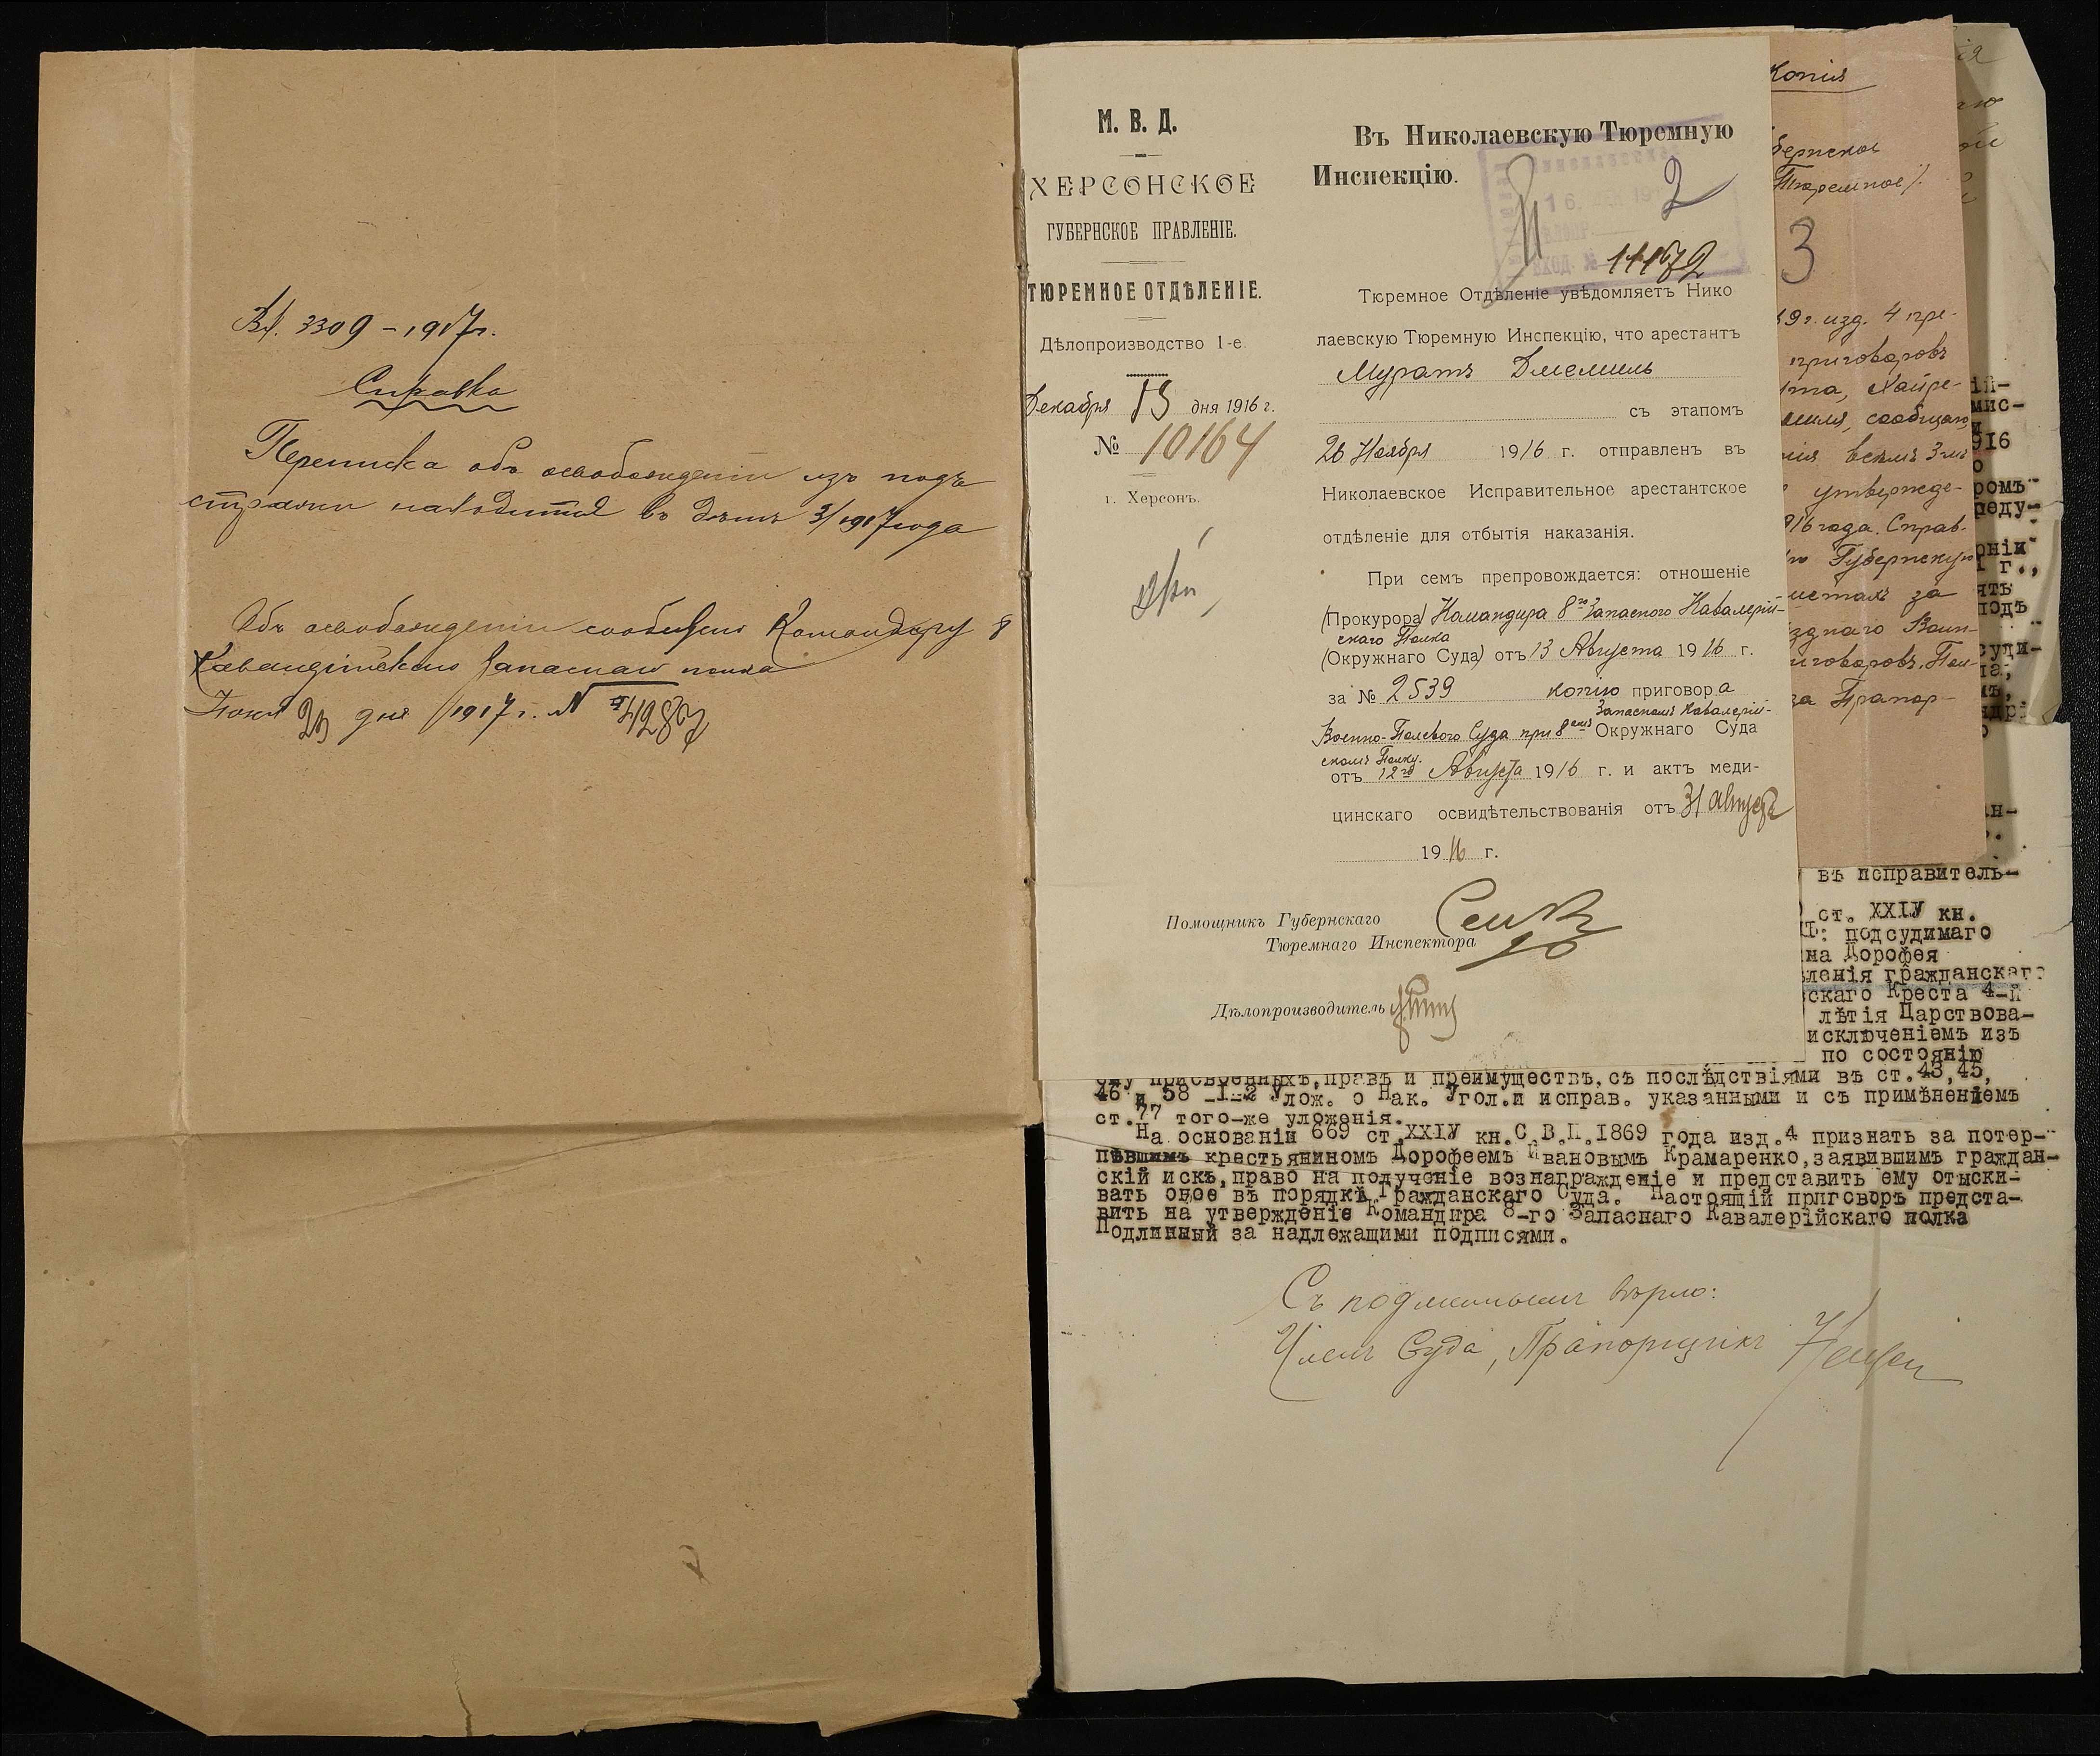 Вх. 3309 – 1917 г.
Справка
Переписка объ освобожденіи изъ подъ
стражи находится въ дѣлѣ 3/1917 года
Объ освобожденіи сообщено Командиру 8
Кавалерійскаго Запаснаго полка
23 дня 1917 г. №
М. В. Д.
ХЕРСОНСКОЕ
ГУБЕРНСКОЕ ПРАВЛЕНІЕ.
ТЮРЕМНОЕ ОТДѢЛЕНІЕ.
Дѣлопроизводство 1-е.
Декабря 13 дня 1916 г.
№ 10164
г. Херсонъ.
Въ Николаевскую Тюремную
Инспекцію.
2
16.
ВХОД. №
11172
Тюремное Отдѣленіе увѣдомляетъ Нико
лаевскую Тюремную Инспекцію, что арестантъ
Муратъ Джемиль
съ этапомъ
26 Ноября 1916 г. отправленъ въ
Николаевское Исправительное арестантское
отдѣленіе для отбытія наказанія.
При семъ препровождается: отношеніе
(Прокурора) Командира 8го Запасного Кавалерій-
скаго Полка
(Окружнаго Суда) отъ 13 Августа 1916 г.
за № 2539 копію приговора
Запасномъ Кавалерій-
Военно-Полевого Суда при 8омъ Окружнаго Суда
скомъ Полку.
отъ 12го Августа 1916 г. и актъ меди-
цинскаго освидѣтельствованія отъ 31 августа
1916 г.
Помощникъ Губернскаго
Тюремнаго Инспектора
Дѣлопроизводитель
Копія
бернское
Тюремное).
3
9 г. изд. 4 пре-
приговоровъ
та, Хайре-
миля, сообщаю
ія всѣмъ 3мъ
утвержде-
916 года. Справ-
Губернскую
истахъ за
зднаго Воин-
иговоровъ. Пол-
за Прапор-
ій-
мис-
916
о
ромъ
реду-
рніи
г.,
ять
подъ
суди-
на,
въ исправитель-
ст. XXIУ кн.
Ъ: подсудимаго
на Дорофея
вленія гражданскаго
скаго Креста 4-й
лѣтія Царствова-
исключеніемъ изъ
по состоянію
ему присвоенныхъ, правъ и преимуществъ, съ послѣдствіями въ ст. 43, 45,
46 и 58 -I-2 Улож. о Нак. Угол. и исправ. указанными и съ примѣненіемъ
ст. 77 того-же уложенія.
На основаніи 669 ст. XXIУ кн. С.В.П. I869 года изд. 4 признать за потер-
пѣвшимъ крестьяниномъ Дорофеемъ Ивановымъ Крамаренко, заявившимъ граждан-
скій искъ, право на полученіе вознагражденіе и представить ему отыски-
вать оное въ порядкѣ Гражданскаго Суда. Настоящій приговоръ предста-
вить на утвержденіе Командира 8-го Запаснаго Кавалерійскаго полка
Подлинный за надлежащими подписями.
Съ подлиннымъ вѣрно:
Членъ Суда, Прапорщикъ